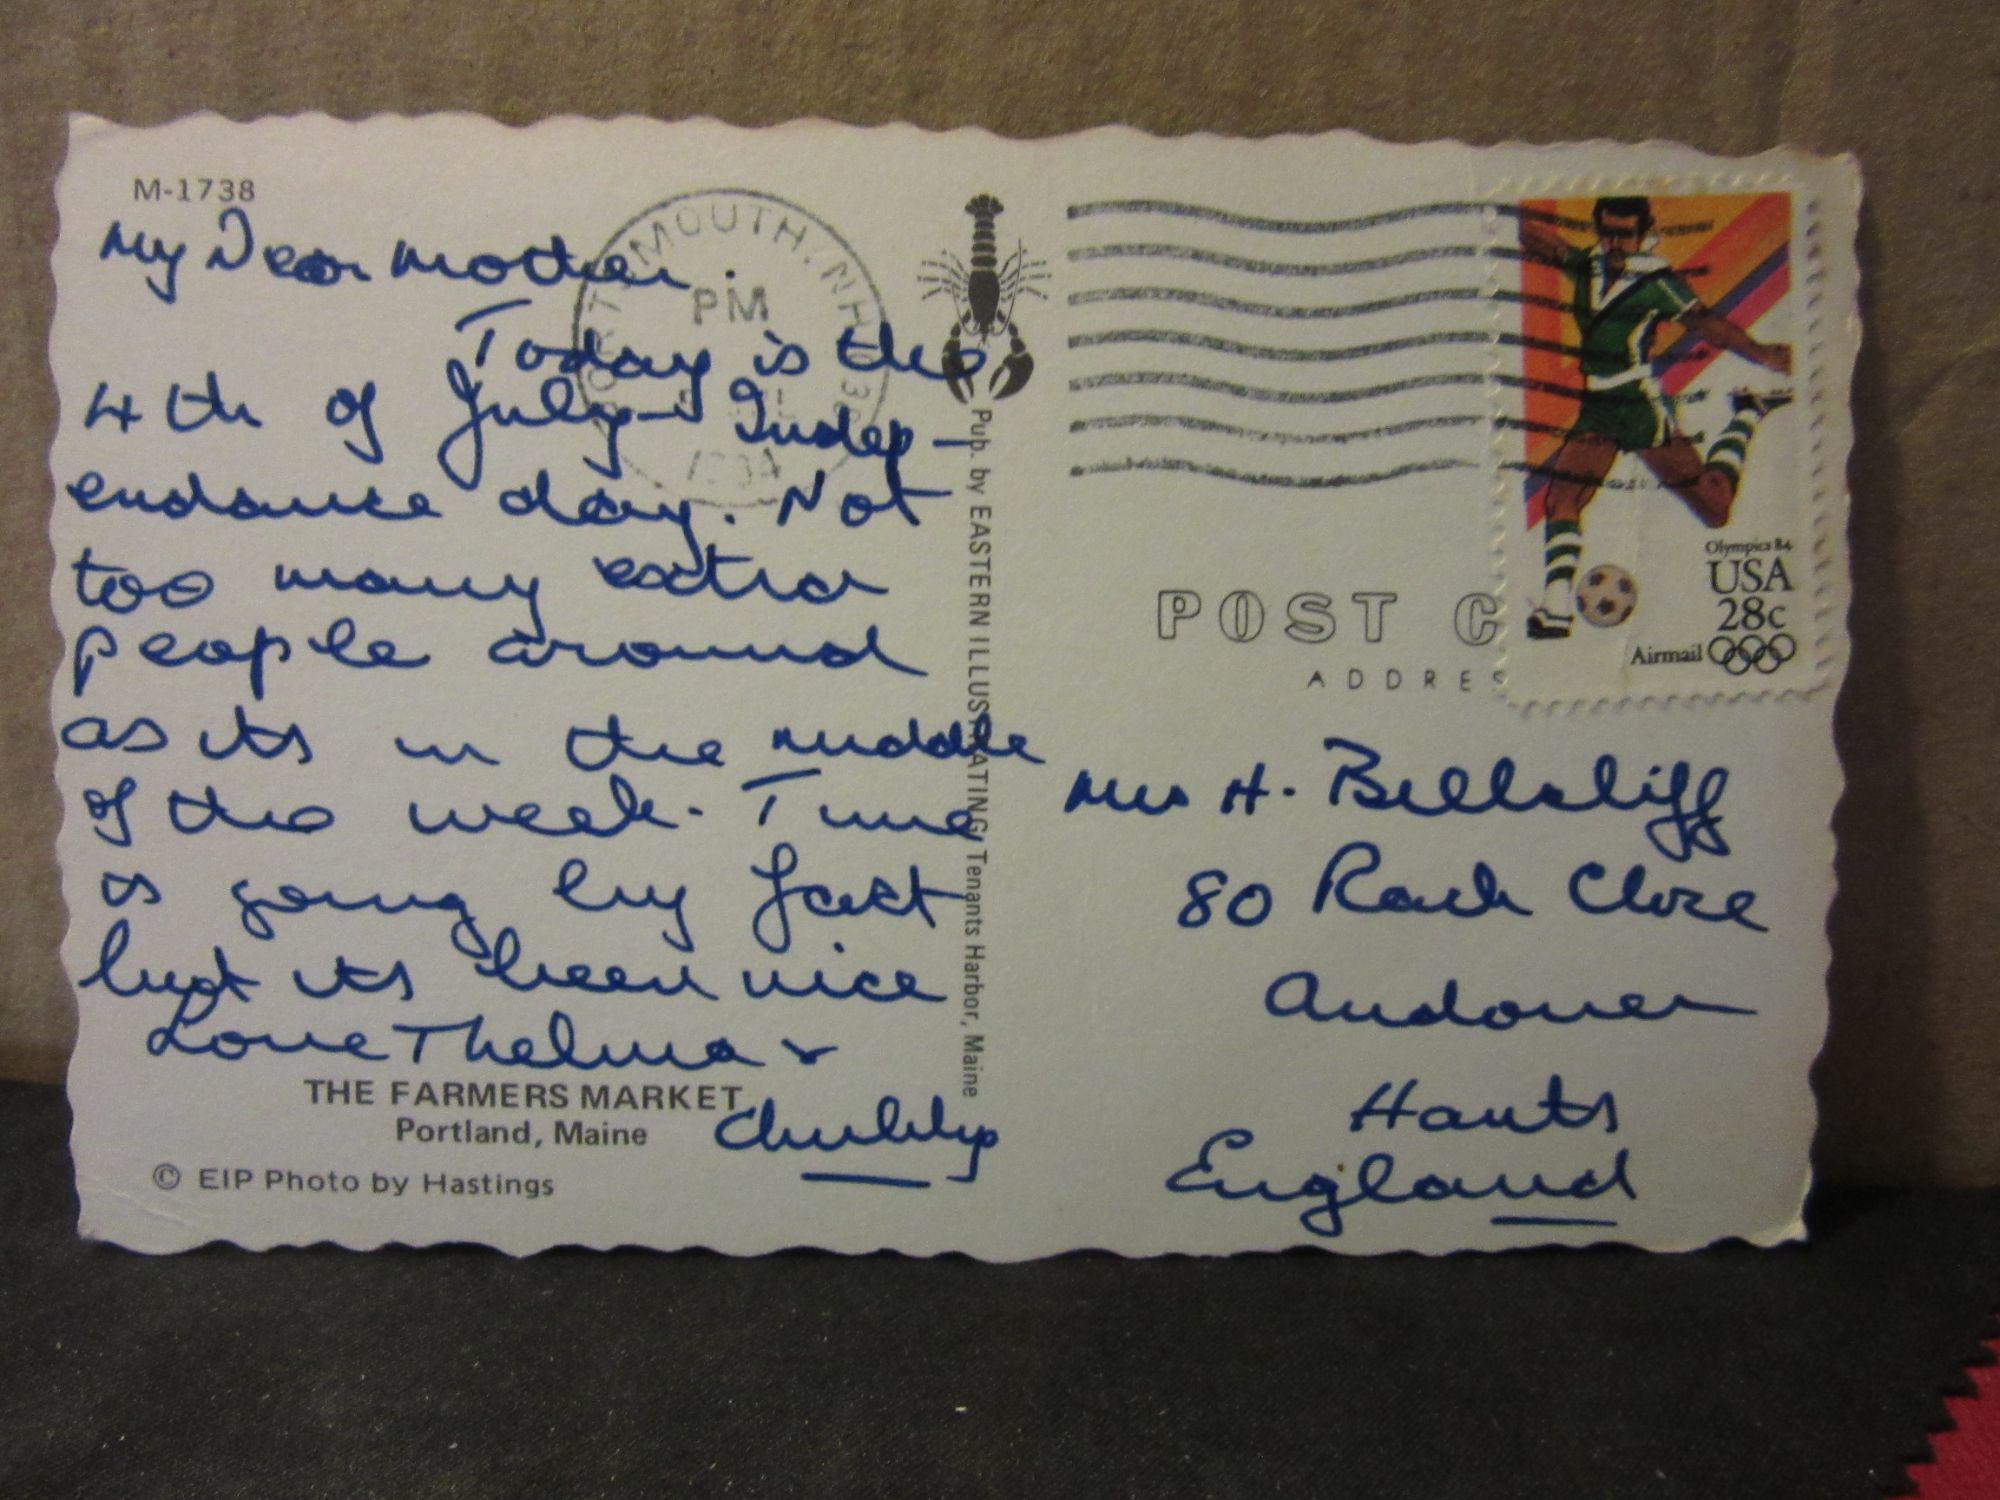 M-1738
My Dear Mother.
Today is the
4th of July - Indep-
endance day. Not
too many extra
people around
as its in the middle
of the week. Time
is going by fast
but its been nice
Love Thelma &
Chubby
THE FARMERS MARKET
Portland, Maine
© EIP Photo by Hastings
PORTSMOUTH, NH 038
PM
Pub. by EASTERN ILLUSTRATING, Tenants Harbor, Maine
Olympics 84
USA
28c
Airmail
POST C
ADDRES
Mrs H. Bellscliff
80 Rack Close
Andover
Hants
England